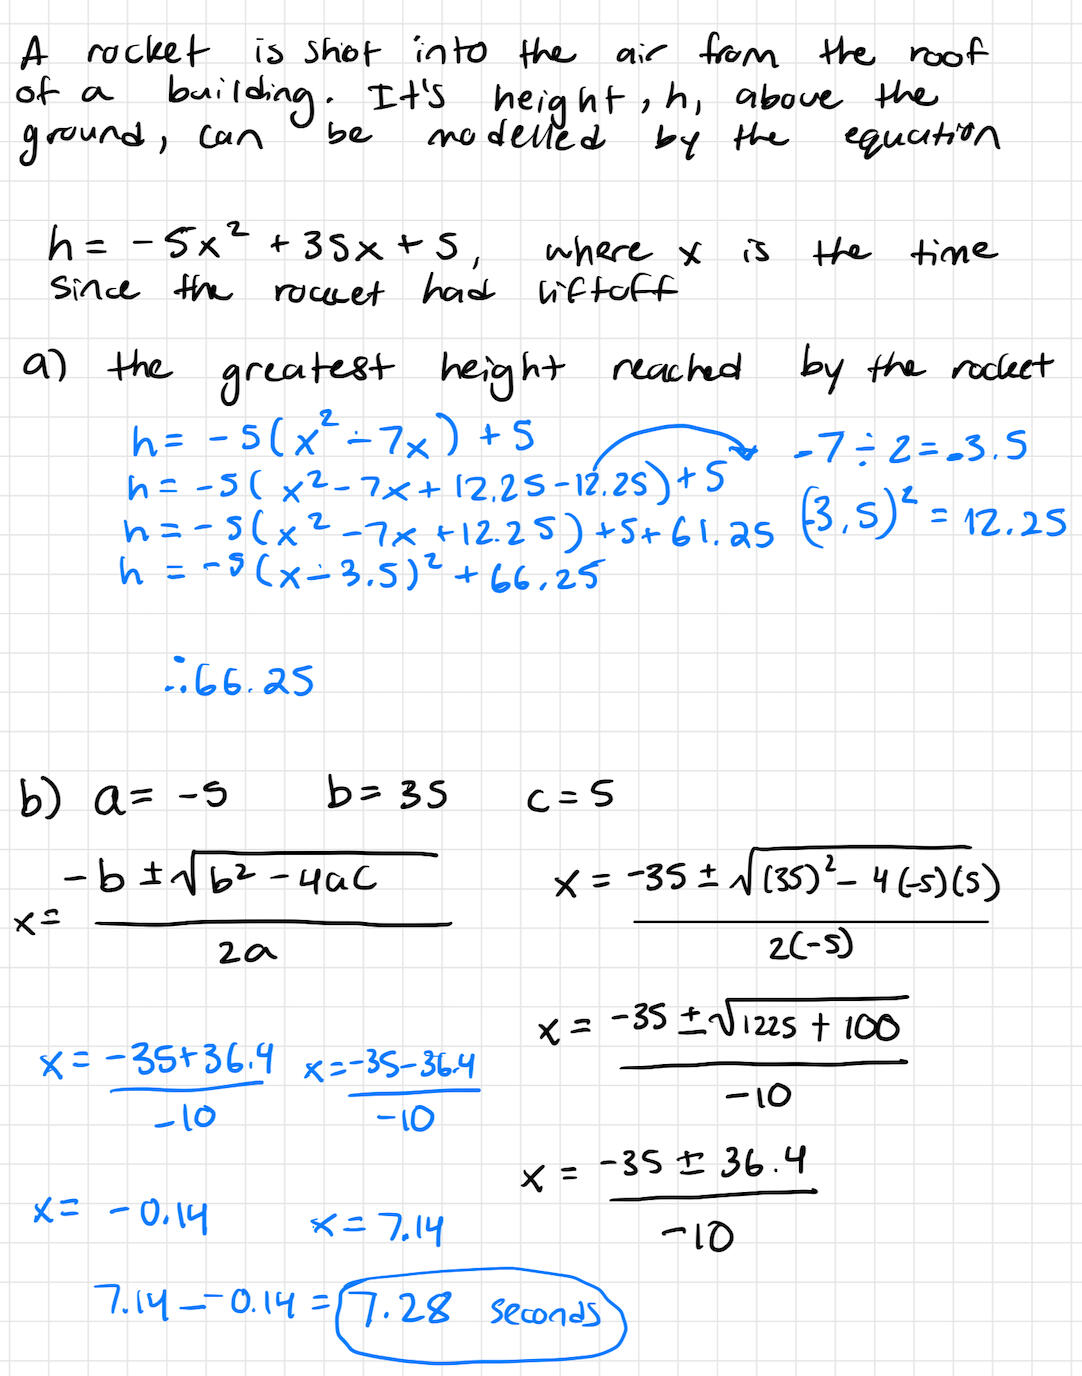 A rocket is shot into the air from the roof
of a building. It's height, h, above the
ground, can be modelled by the equation
h = -5x² + 35x + 5, where x is the time
since the rocket had liftoff
a) the greatest height reached by the rocket
h = -5(x² - 7x) + 5
-7 ÷ 2 = -3.5
h = -5(x² - 7x + 12.25 - 12.25) + 5
(-3.5)² = 12.25
h = -5(x² - 7x + 12.25) + 5 + 61.25
h = -5(x - 3.5)² + 66.25
∴ 66.25
b) a = -5 b = 35 c = 5
x = -b ± √b² - 4ac / 2a
x = -35 ± √(35)² - 4(-5)(5) / 2(-5)
x = -35 ± √1225 + 100 / -10
x = -35 ± 36.4 / -10
x = -35 + 36.4 / -10 x = -35 - 36.4 / -10
x = -0.14 x = 7.14
7.14 - -0.14 = 7.28 seconds